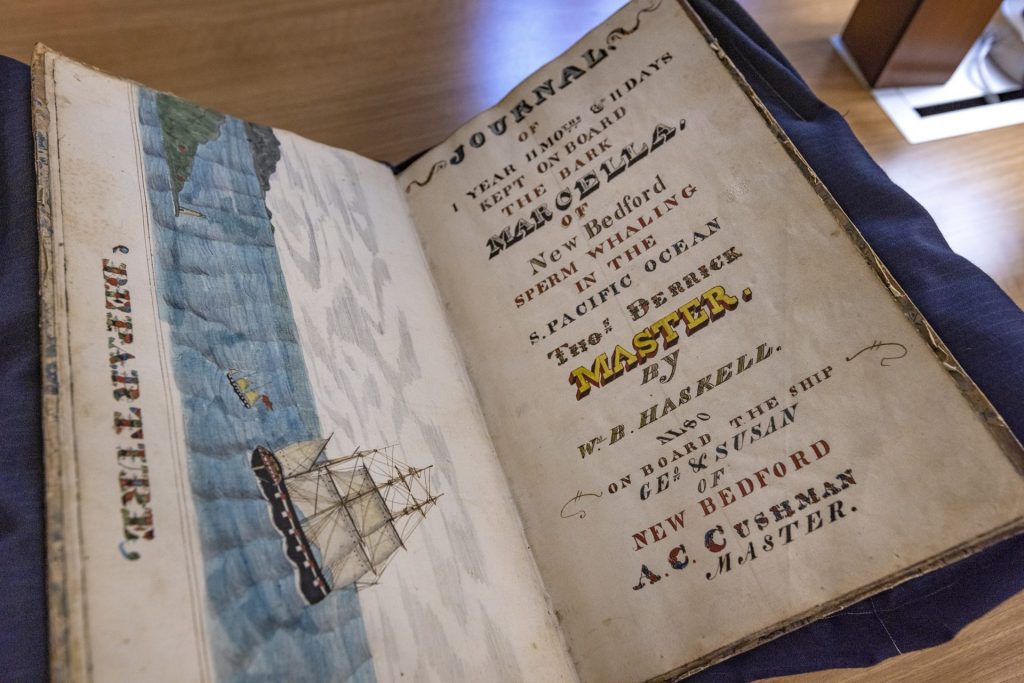 DEPARTURE
JOURNAL
OF
1 YEAR 11 MOTHS & 11 DAYS
KEPT ON BOARD
THE BARK
MARCELLA,
OF
New Bedford
SPERM WHALING
IN THE
S. PACIFIC OCEAN
THOS DERRICK
MASTER.
By
Wm. B. HASKELL.
ALSO
ON BOARD THE SHIP
GEO & SUSAN
OF
NEW BEDFORD
A. C. CUSHMAN
MASTER.